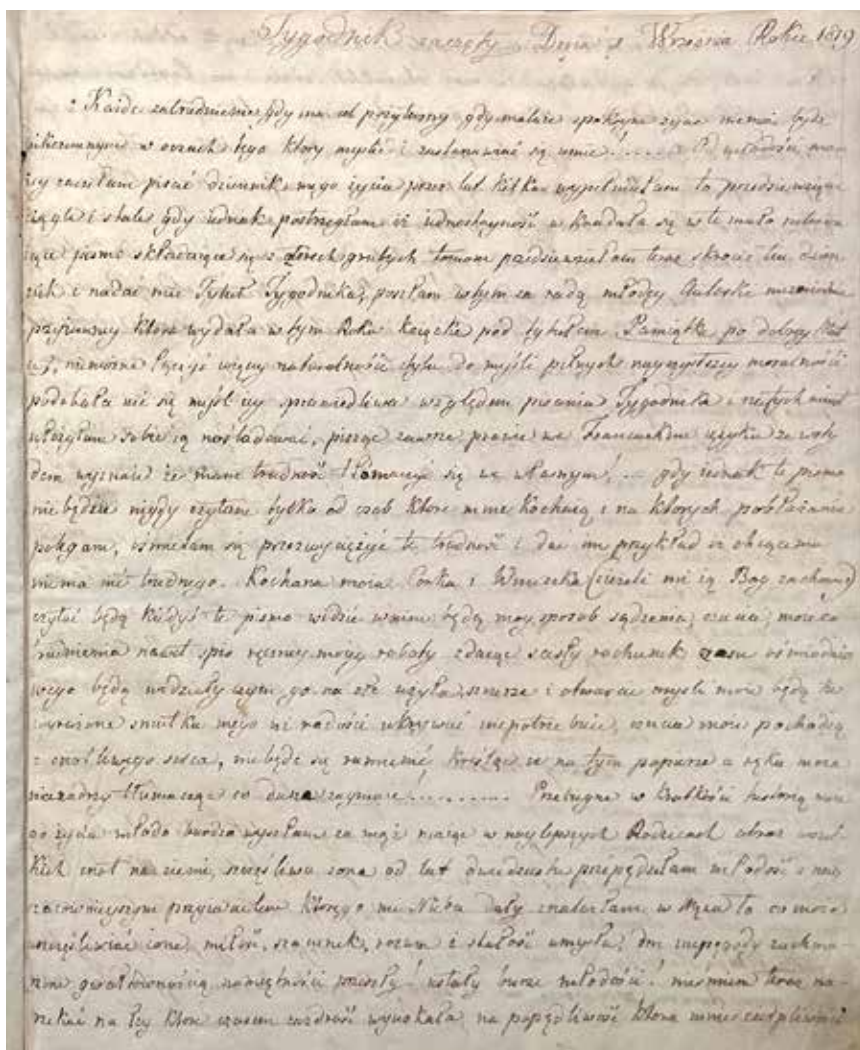 Tygodnik zaczęty Dnia 1 Września Roku 1819
Każde zatrudnienie gdy ma cel pożyteczny gdy maluie spokoyne życie niemoże bydź
w oczach tego ktory myśleć i zastanawiać się umie!..... Od młodości mo
iey zaczełam pisać dziennik mego życia przez lat kilka wypełniałam to przedsięwzięcie
ciągle i stale gdy iednak postrzegłam iż iednostayność wkradała się w te mało
iące pismo składaiące się z grubych tomow przedsięwziełam teraz skrocić ten dzien
nik i nadać mu Tytuł Tygodnika, poszłam w tym za radą młodey Autorki
ktora wydała w tym Roku książkę pod tytułem Pamiątka po dobrey Mat
ce, niemożna łączyć więcey naturalności stylu do myśli pełnych nayczystszey moralności
podobała mi się myśl iey sprawiedliwa względem pisania Tygodnika i natychmiast
ułożyłam sobie ią naśladować, pisząc zawsze prawie we Francuskim ięzyku ze wsty
dem wyznaię że mam trudność tłomaczyć się we własnym!... gdy iednak te pismo
nie będzie nigdy czytane tylko od osob ktore mnie kochaią i na ktorych pobłażaniu
polegam, ośmielam się przezwyciężyć te trudność i dać im przykład iż chcącemu
niema nic trudnego. Kochana moia Corka i Wnuczka (ieżeli mi ią Bog zachowa)
czytać będą kiedyś te pismo widzieć w nim będą moy sposob sądzenia, czucia, moie za
trudnienia nawet spis ręczney moiey roboty zdaiąc ścisły rachunek czasu
wego będą widziały czym go na złe użyła, szczerze i otwarcie myśli moie będą tu
wyrażone smutku mego ni radości ukrywać niepotrzebuię, czucia moie pochodzą
z cnotliwego serca, nie będę się rumienić kreśląc ie na tym papierze a ręka moia
tłumacząc co dusza zaymuie!......... Przebiegnę w krotkości historią moie
go życia młodo bardzo wyszłam za mąż maiąc w naylepszych Rodzicach obraz wszel
kich cnot na ziemi, szczęśliwa żona od lat dwudziestu przepędziłam młodość z nay
przyiacielem ktorego mi Nieba dały znalazłam w Mężu to co może
uszczęśliwiać żonę, miłość, szacunek, rozum i stałość umysłu, dni niepogody
ne gwałtownością namiętności przeszły! ustały burze młodości! nieśmiem teraz na
rzekać na łzy ktore czasem zazdrość wyciskała, na popędliwość ktora